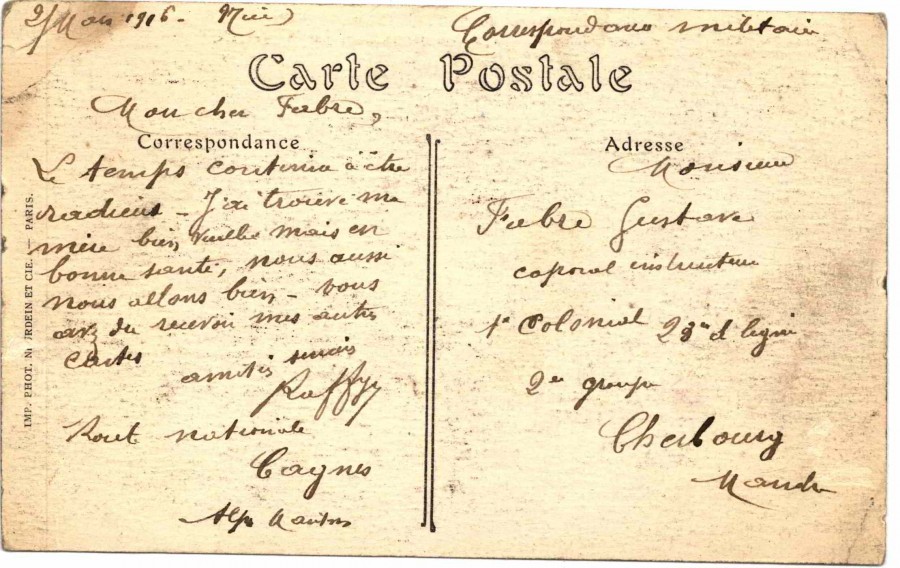 2 Mars 1916 - Nice
Correspondance militaire
Carte Postale
Mon cher Fabre,
Correspondance
Le temps continue à être
radieux - J'ai trouvé ma
mère bien vieille mais en
bonne santé, nous aussi
nous allons bien - vous
avez du recevoir mes autres
cartes
amitiés
Raffy
Route nationale
Cagnes
Alpes Maritimes
Adresse
Monsieur
Fabre Gustave
caporal instructeur
1er Colonial 23me d ligne
2e groupe
Cherbourg
Manche
IMP. PHOT. NEURDEIN ET CIE. — PARIS.